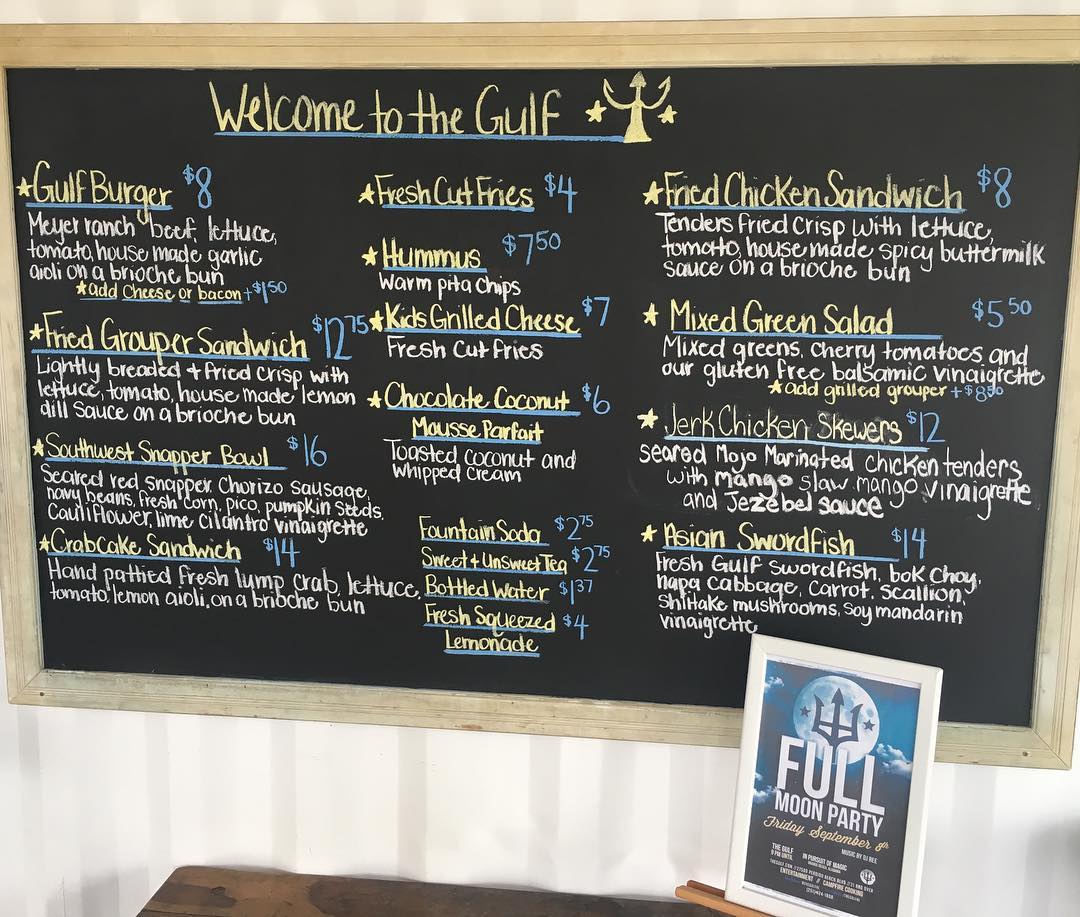 Welcome to the Gulf
Gulf Burger $8
Meyer ranch beef, lettuce,
tomato, house made garlic
aioli on a brioche bun
*add cheese or bacon +$1.50
Fried Grouper Sandwich $12.75
Lightly breaded + fried crisp with
lettuce, tomato, house made lemon
dill sauce on a brioche bun
Southwest Snapper Bowl $16
Seared red snapper, Chorizo sausage,
navy beans, fresh corn, pico, pumpkin seeds,
Cauliflower, lime cilantro vinaigrette
Crabcake Sandwich $14
Hand pattied fresh lump crab, lettuce,
tomato, lemon aioli, on a brioche bun
Fresh Cut Fries $4
Hummus $7.50
Warm pita chips
Kids Grilled Cheese $7
Fresh Cut fries
Chocolate Coconut $6
Mousse Parfait
Toasted coconut and
whipped cream
Fountain Soda $2.75
Sweet + Unsweet Tea $2.75
Bottled Water $1.37
Fresh Squeezed $4
Lemonade
Fried Chicken Sandwich $8
Tenders fried crisp with lettuce,
tomato, house made spicy buttermilk
sauce on a brioche bun
Mixed Green Salad $5.50
Mixed greens, cherry tomatoes, and
our gluten free balsamic vinaigrette
*add grilled grouper +$8.50
Jerk Chicken Skewers $12
Seared Mojo Marinated chicken tenders
with mango slaw, mango vinaigrette
and Jezebel sauce
Asian Swordfish $14
Fresh Gulf swordfish, bok choy,
napa cabbage, carrot, scallion,
Shiitake mushrooms, soy mandarin
vinaigrette
FULL
MOON PARTY
Friday September 8th
MUSIC BY DJ BEE
THE GULF
IN PURSUIT OF MAGIC
ENTERTAINMENT // CAMPFIRE COOKING